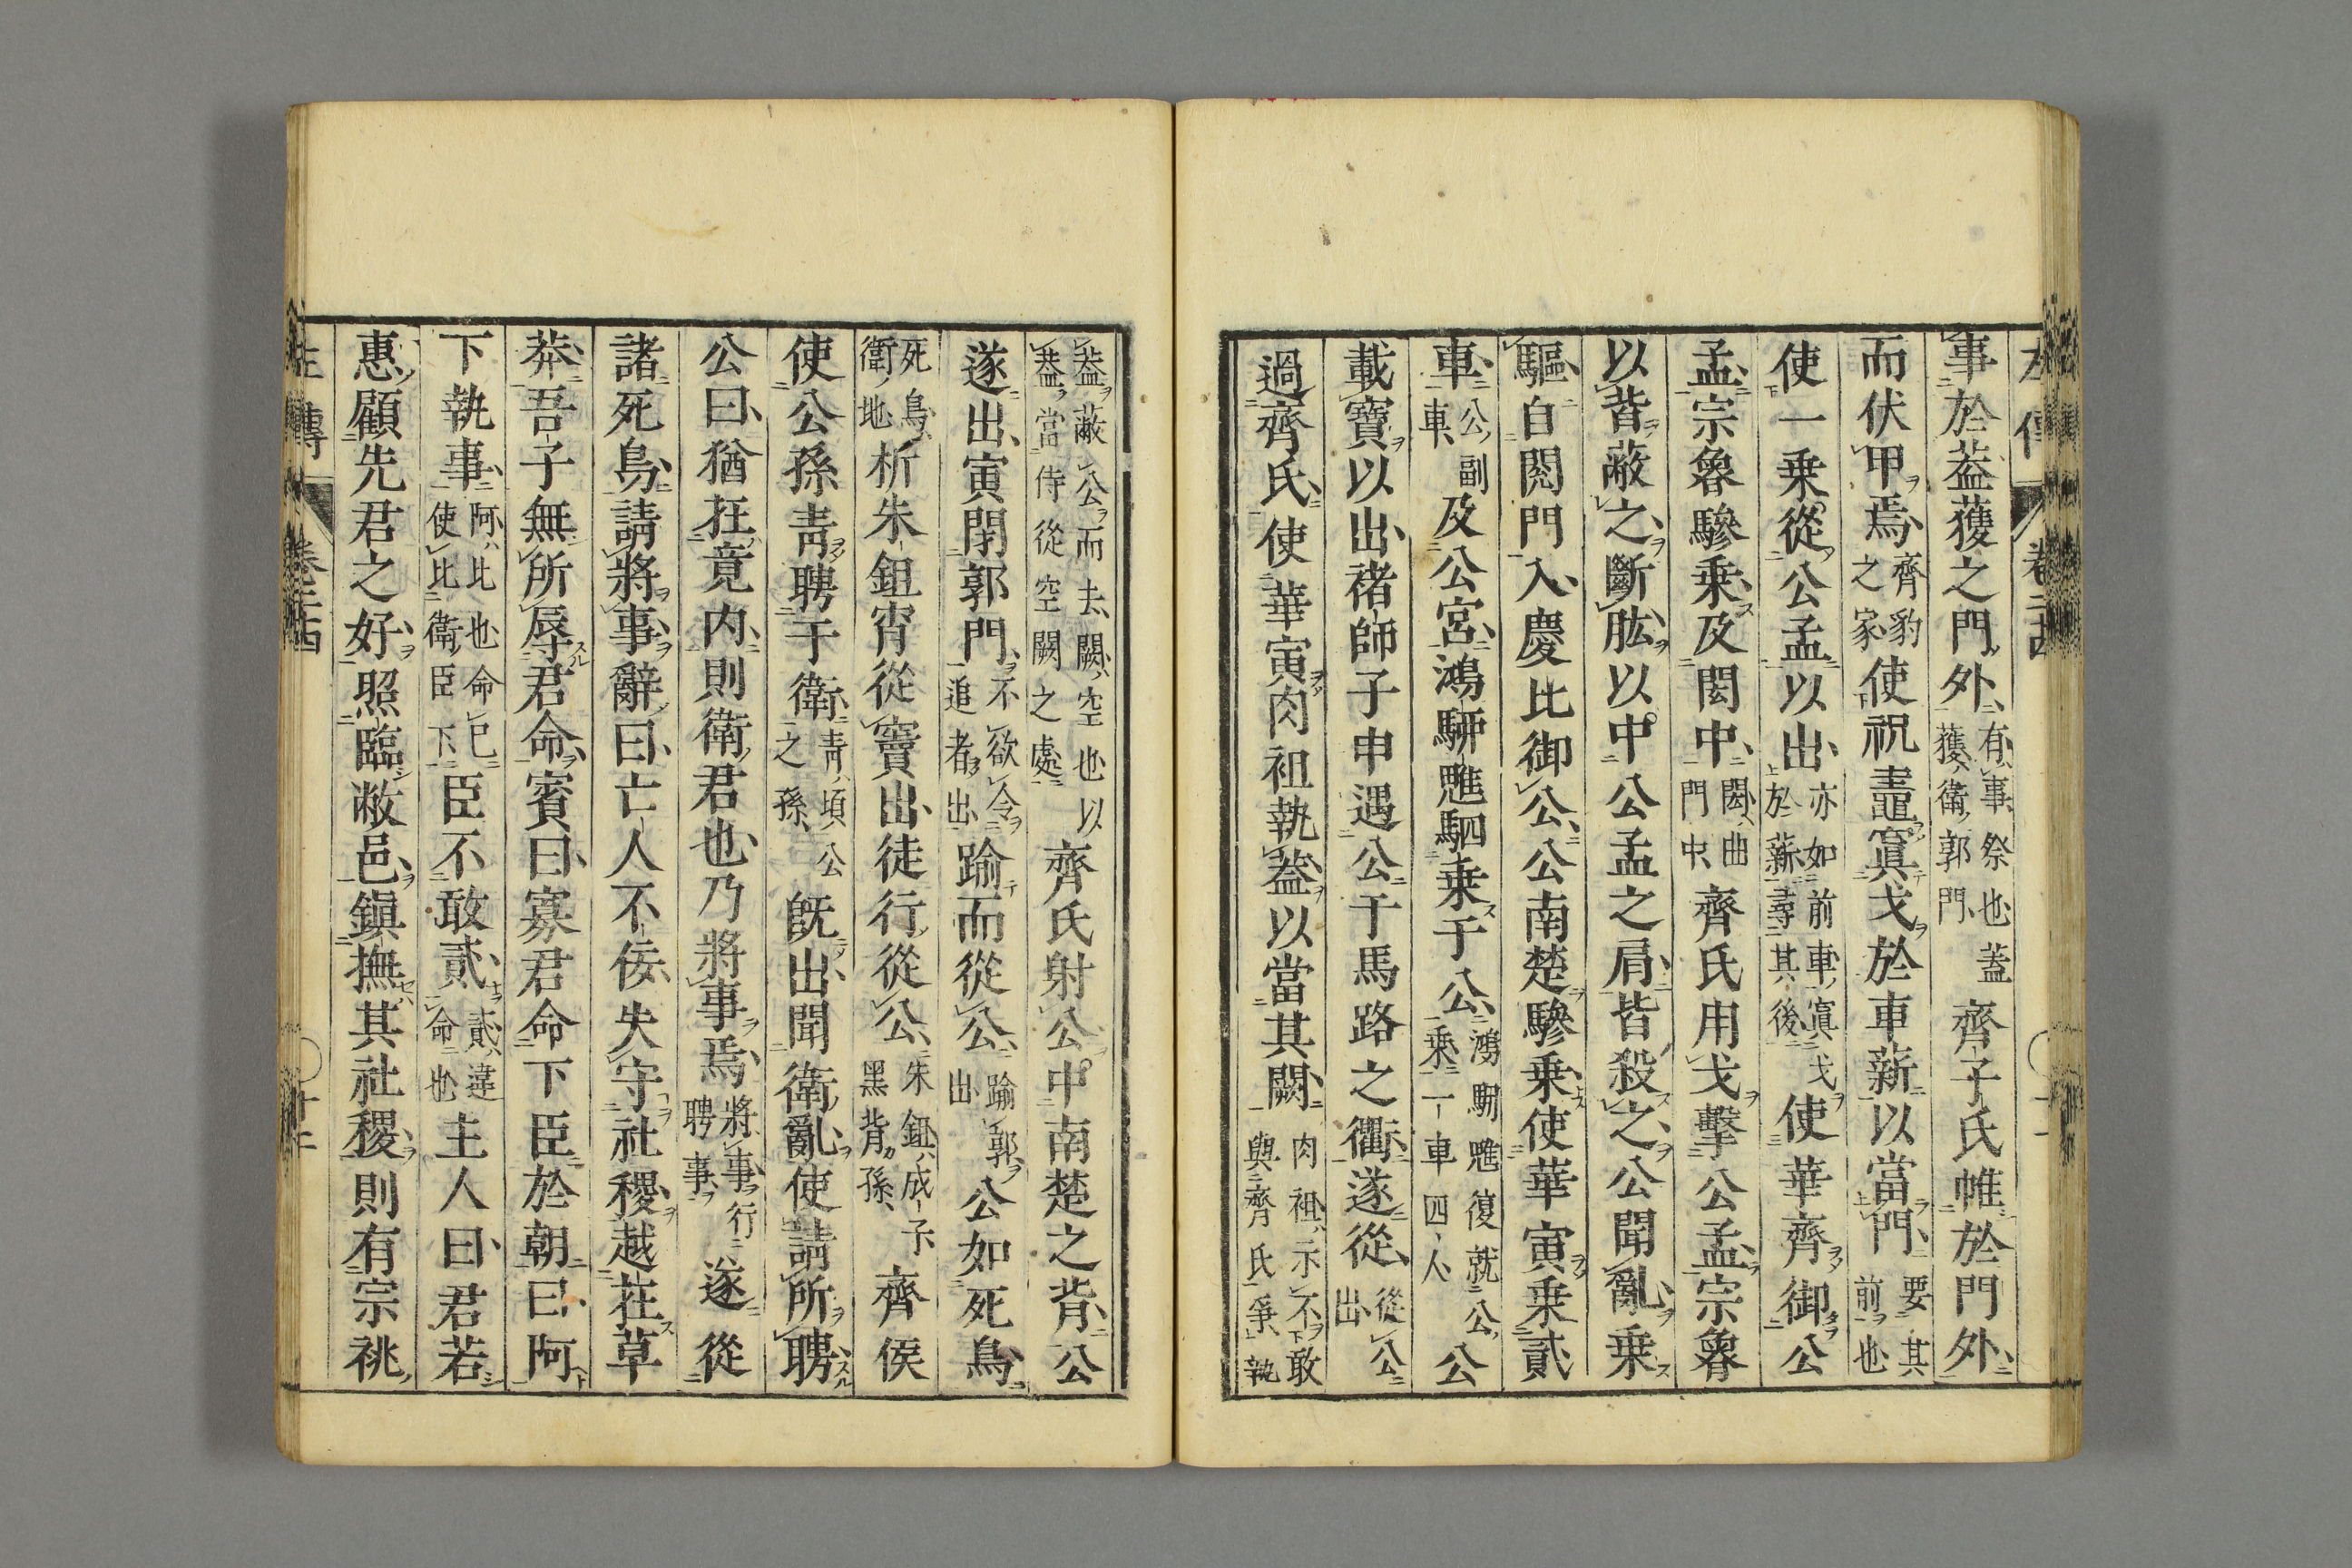 左傳 卷二十四
事於蓋獲之門外有事祭也蓋獲衛郭門齊子氏帷於門外
而伏甲焉齊豹之家使祝鼃寘戈於車薪以當門要其前也
使一乘從公孟以出亦如前車寘戈於薪尋其後使華齊御公
孟宗魯驂乘及閎中閎曲門中齊氏用戈擊公孟宗魯
以背蔽之斷肱以中公孟之肩皆殺之公聞亂乘
驅自閱門入慶比御公公南楚驂乘使華寅乘貳
車公副車及公宮鴻駵魋駟乘于公鴻駵魋復就公乘一車四人公
載寶以出褚師子申遇公于馬路之衢遂從從公出
過齊氏使華寅肉袒執蓋以當其闕肉袒示不敢與齊氏爭執
蓋蔽公而去闕空也以蓋當侍從空闕之處齊氏射公中南楚之背公
遂出寅閉郭門不欲令追者出踰而從公踰郭出公如死鳥
死鳥衛地析朱鉏宵從竇出徒行從公朱鉏成子黑背孫齊侯
使公孫青聘于衛青頃公之孫既出聞衛亂使請所聘
公曰猶在竟內則衛君也乃將事焉將事行聘事遂從
諸死鳥請將事辭曰亡人不佞失守社稷越在草
莽吾子無所辱君命賓曰寡君命下臣於朝曰阿
下執事阿比也命已使比衛臣下臣不敢貳貳違命也主人曰君若
惠顧先君之好照臨敝邑鎮撫其社稷則有宗祧
左傳 卷二十四 十二